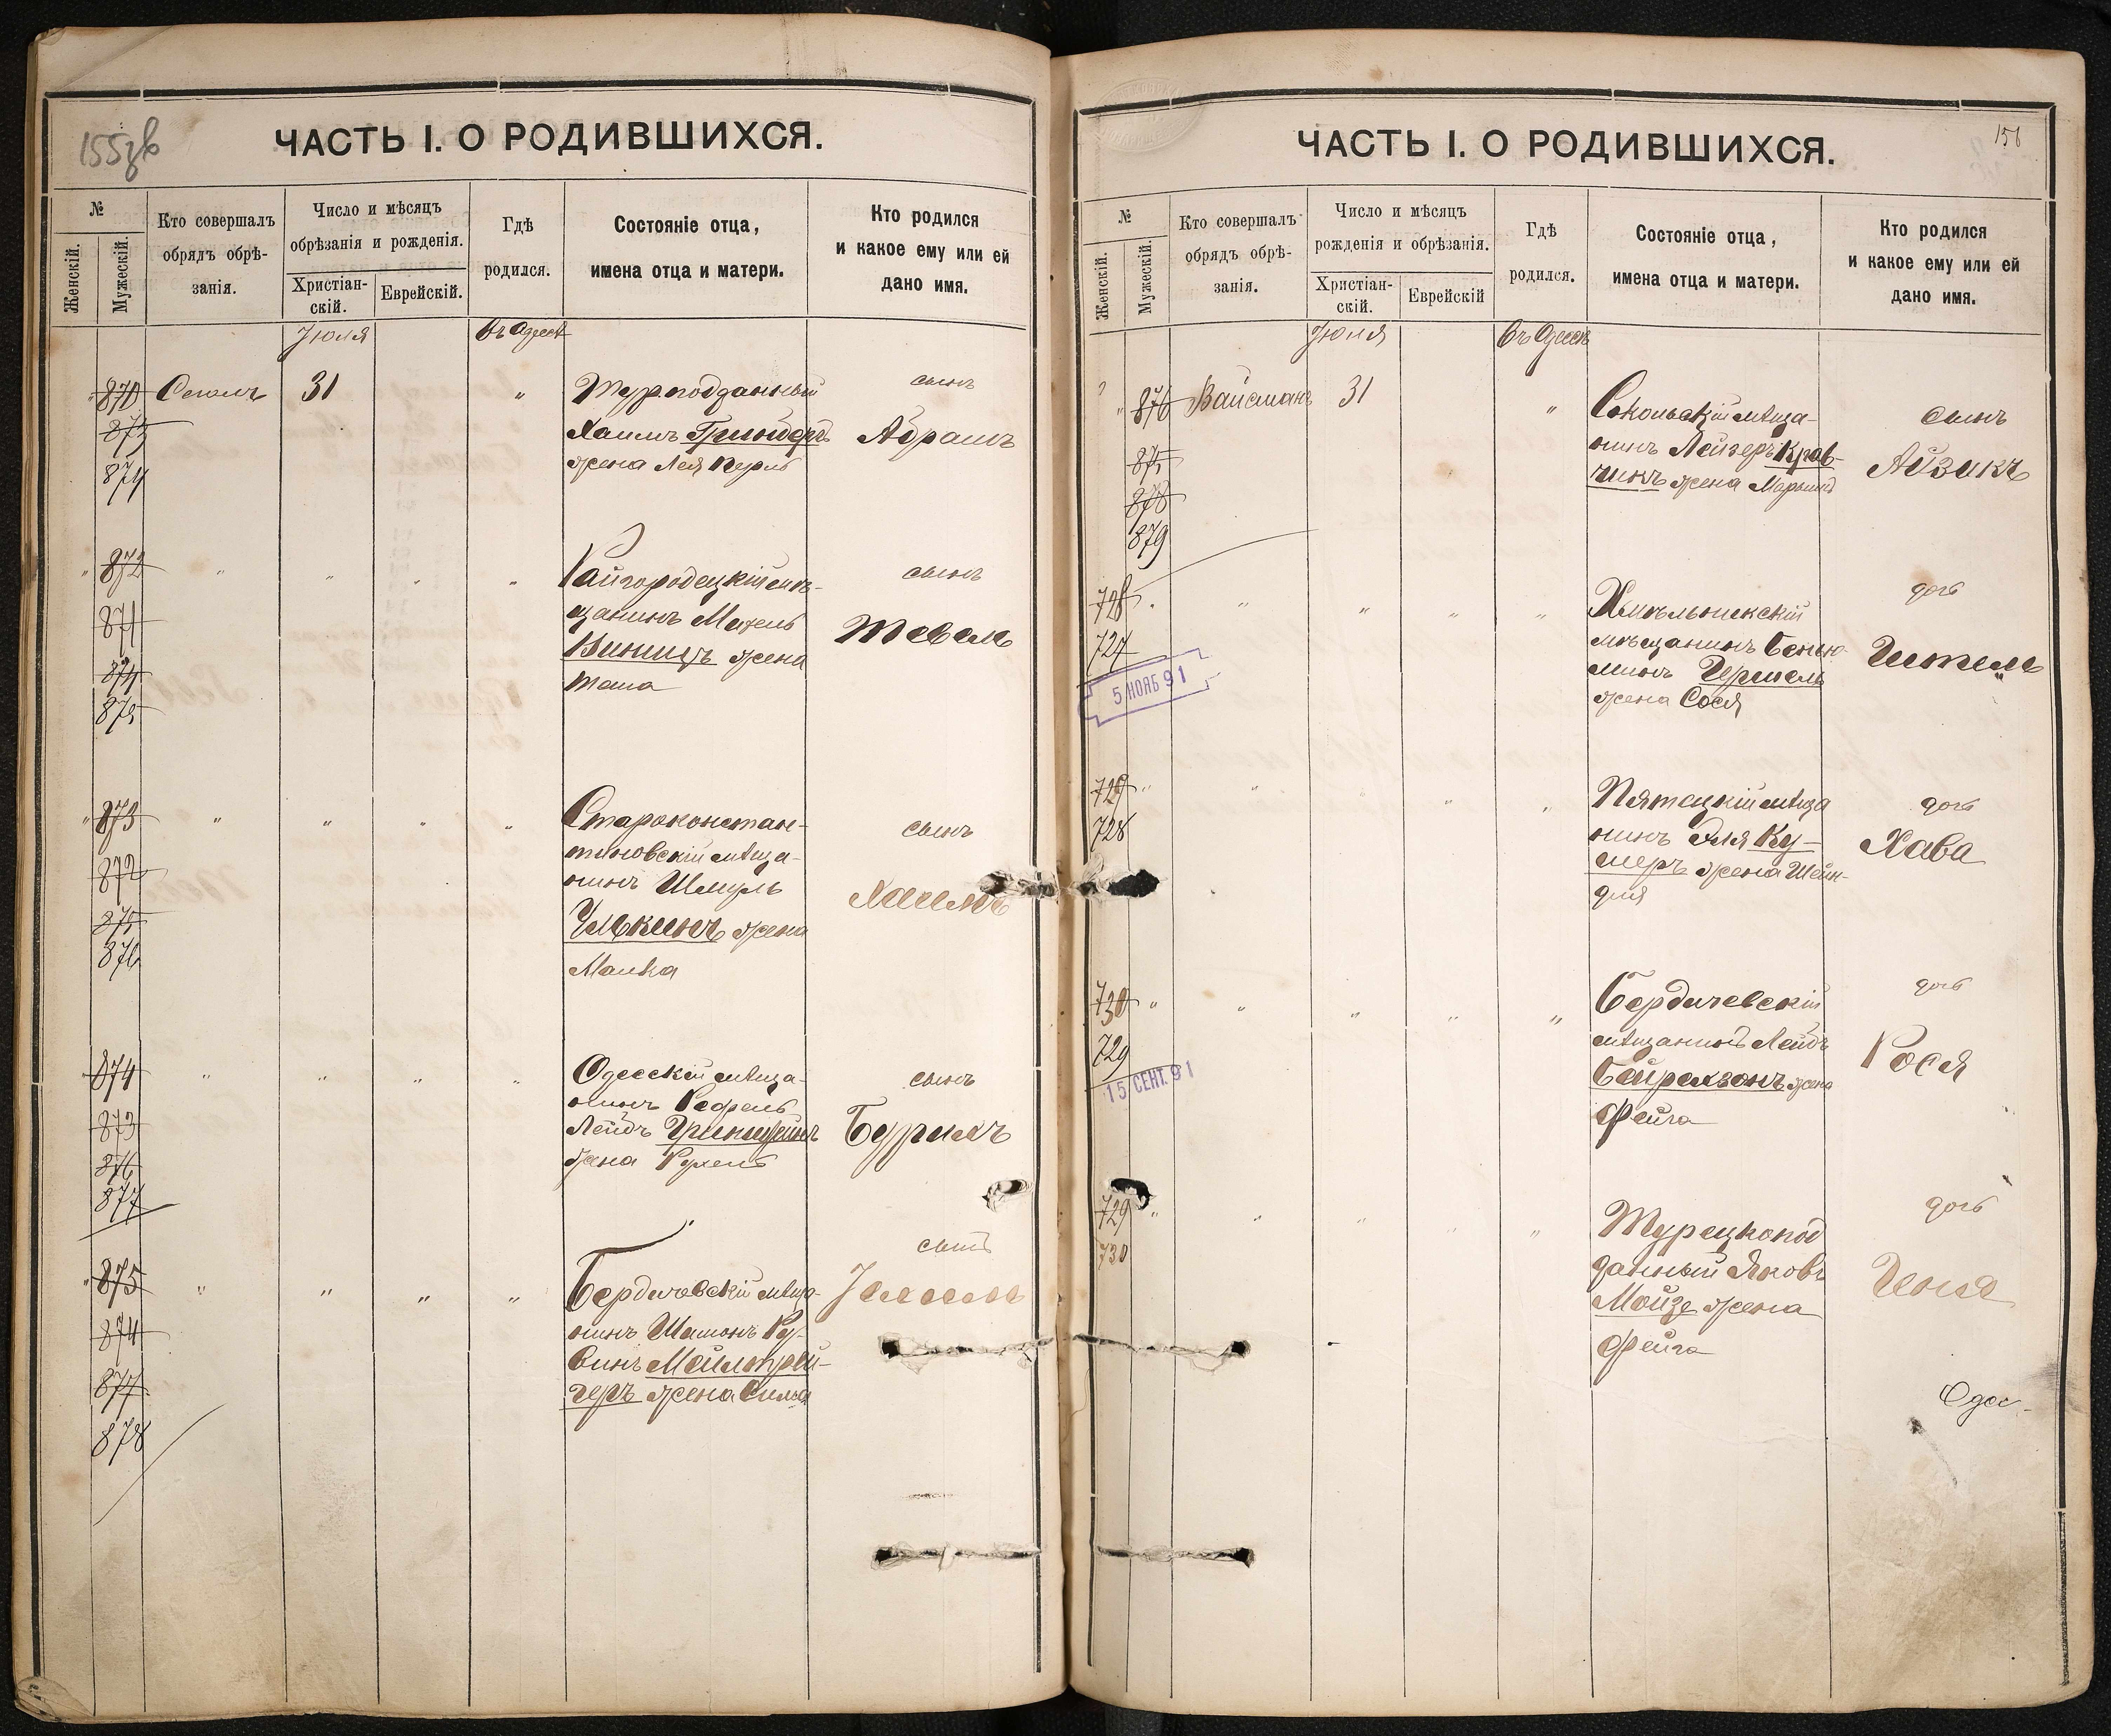 155зв
ЧАСТЬ I. О РОДИВШИХСЯ.
№
Женскій.
Мужескій.
Кто совершалъ
обрядъ обрѣ-
занія.
Число и мѣсяцъ
обрѣзанія и рожденія.
Христіан-
скій.
Еврейскій.
Гдѣ
родился.
Состояніе отца,
имена отца и матери.
Кто родился
и какое ему или ей
дано имя.
Іюля
въ Одессѣ
870
873
874
Сегалъ
31
"
Тур. подданный
Хаимъ Гринбергъ
жена Лея Перль
сынъ
Абрамъ
872
871
874
875
"
"
"
"
Райгородецкій мѣ-
щанинъ
жена
сынъ
Тевель
873
872
875
876
"
"
"
"
Староконстан-
тиновскій мѣща-
нинъ Шмуль
Улькинъ жена
Малка
сынъ
Хаимъ
874
873
876
877
"
"
"
"
Одесскій мѣща-
нинъ
Лейбъ Гринштейнъ
жена Рухель
сынъ
875
874
877
878
"
"
"
"
Бердичевскій мѣща-
нинъ Шимонъ Ру-
винъ
жена
сынъ
156
ЧАСТЬ I. О РОДИВШИХСЯ.
№
Женскій.
Мужескій.
Кто совершалъ
обрядъ обрѣ-
занія.
Число и мѣсяцъ
рожденія и обрѣзанія.
Христіан-
скій.
Еврейскій
Гдѣ
родился.
Состояніе отца,
имена отца и матери.
Кто родился
и какое ему или ей
дано имя.
Іюля
въ Одессѣ
876
875
878
879
Вайсманъ
31
"
Сокольскій мѣща-
нинъ Лейзеръ Крав-
чикъ жена
сынъ
Айзикъ
728
727
5 НОЯБ 91
"
"
"
"
Хмѣльникскій
мѣщанинъ Беню-
минъ Гершель
жена Сося
дочь
Гитель
729
728
"
"
"
"
Пятецкій мѣща
нинъ Эля Ку-
шеръ жена Шейн-
для
дочь
Хава
730
729
15 СЕНТ. 91
"
"
"
"
"
Бердичевскій
мѣщанинъ Лейбъ
жена
Фейга
дочь
Рося
729
730
"
"
"
"
"
Турецкопод
данный Яковъ
Мойзе жена
Фейга
дочь
Геня
Одес-